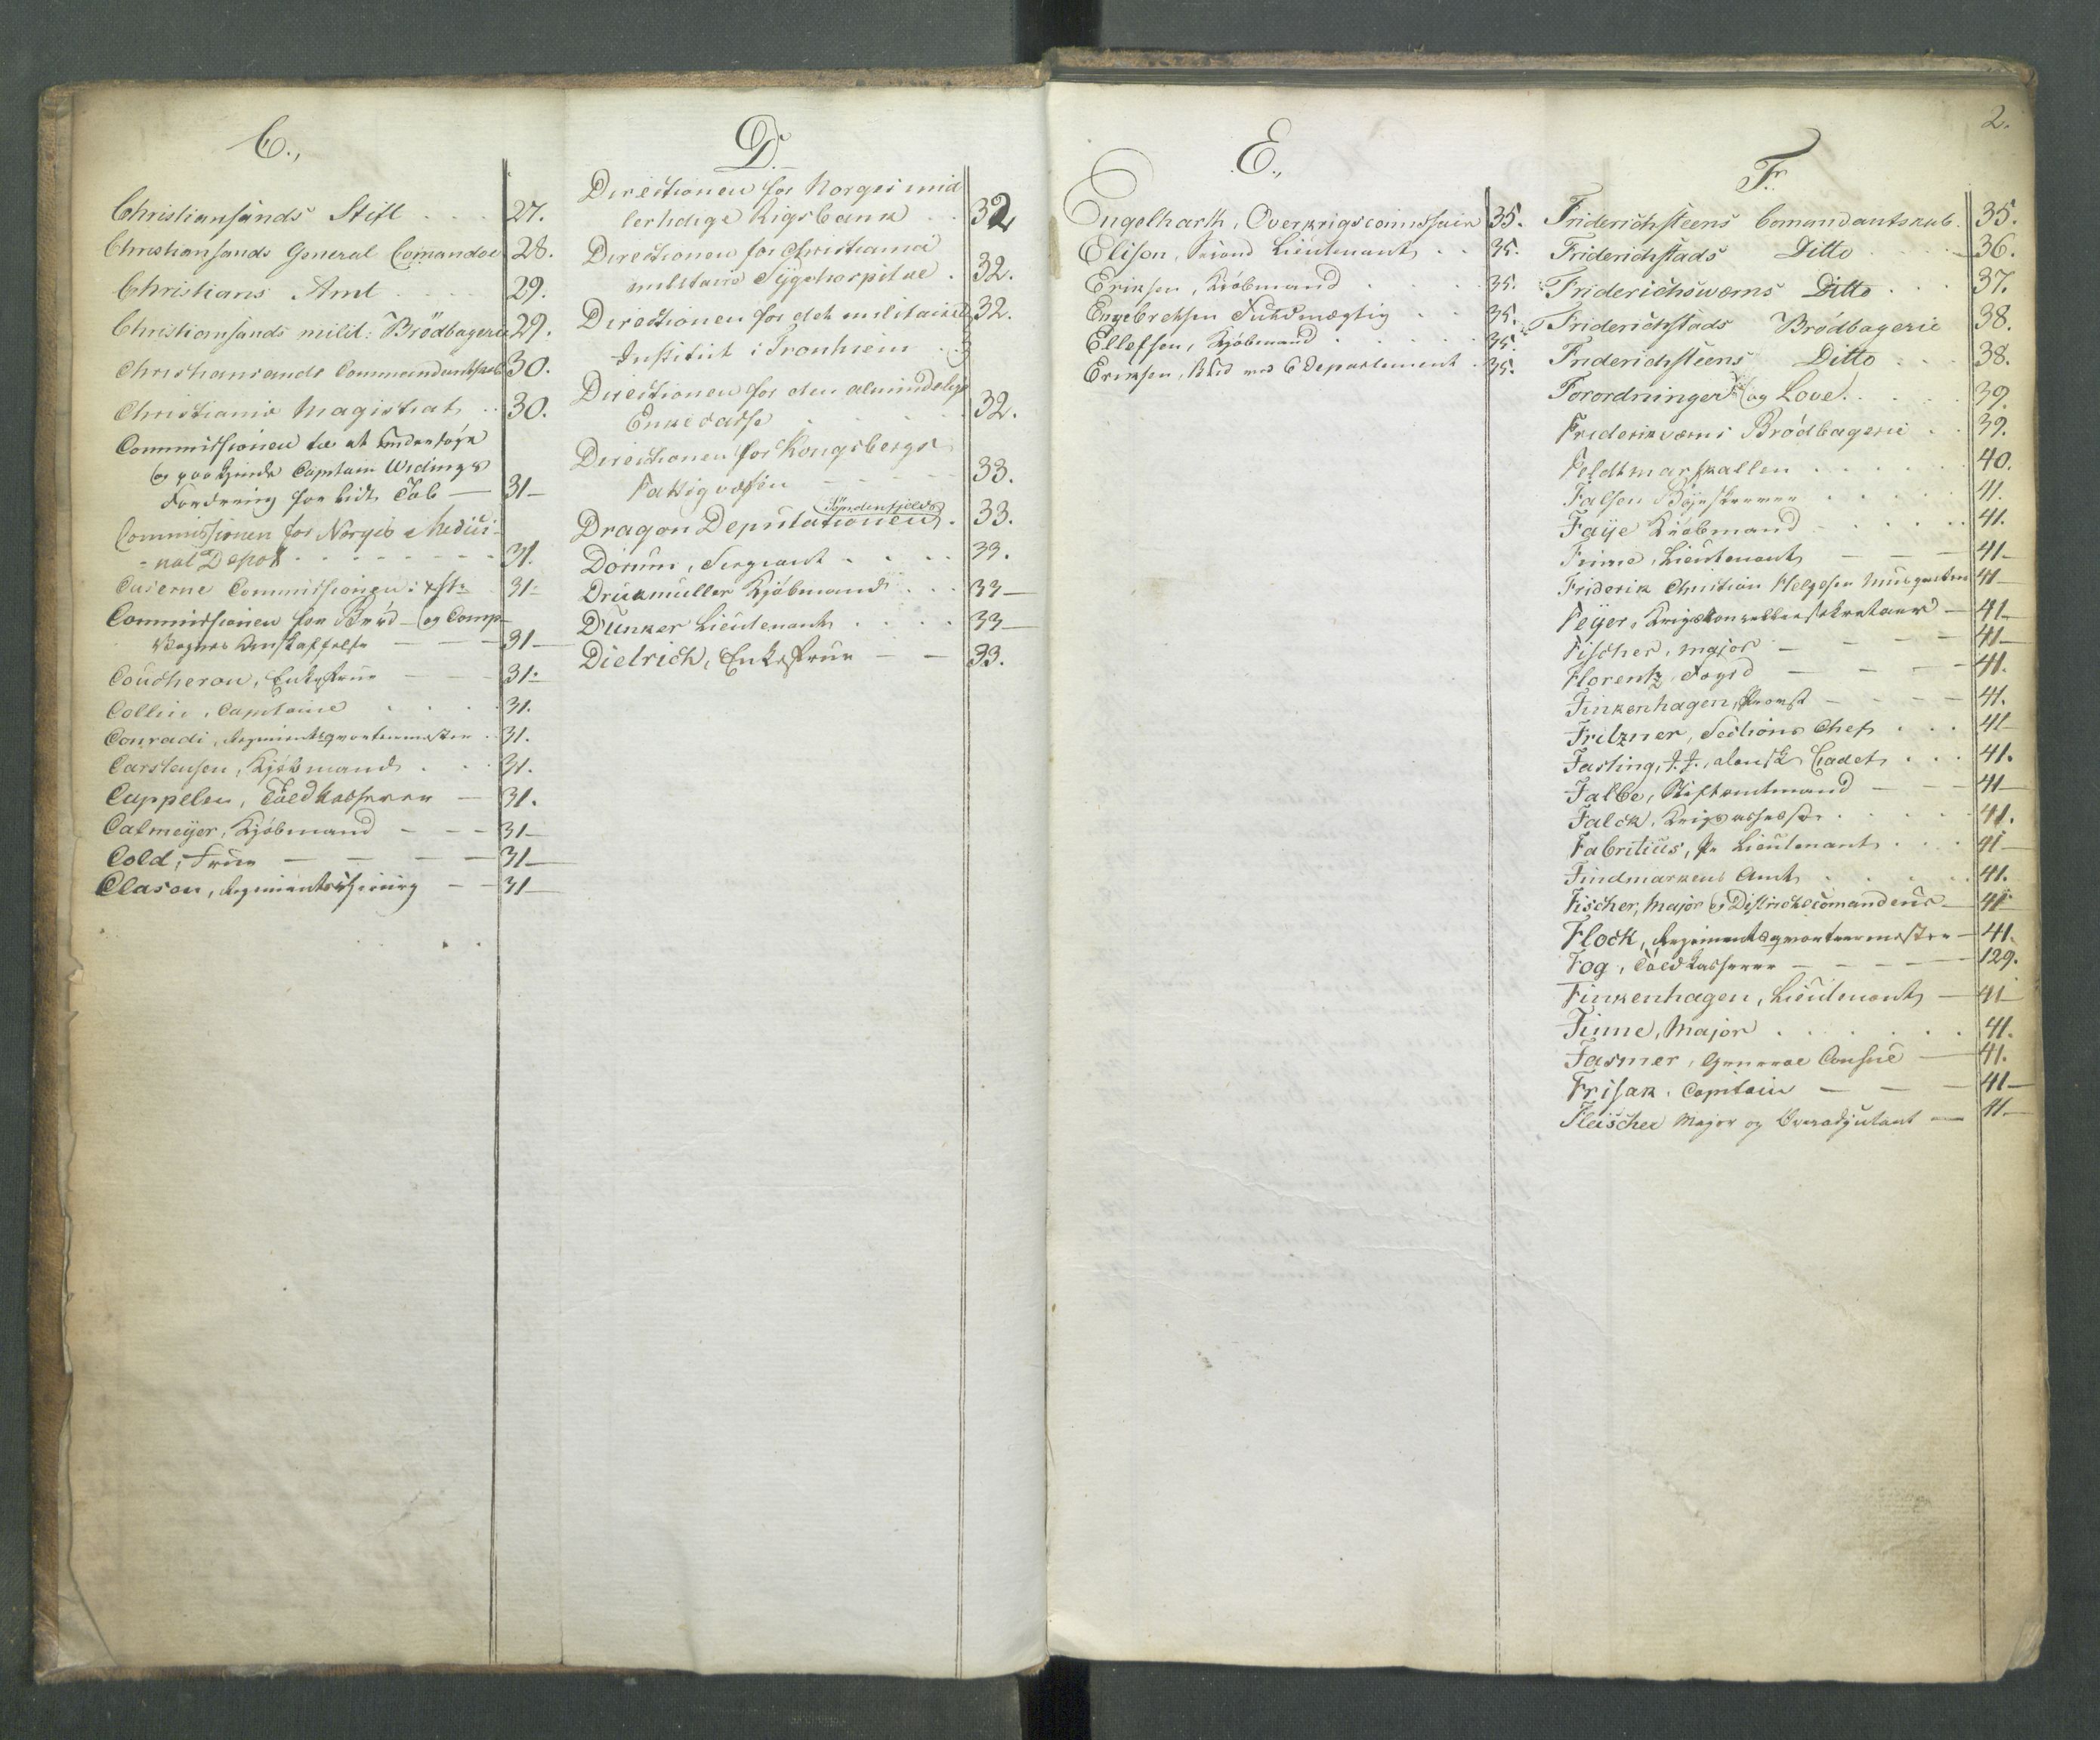 C.,
Christiansands Stift . . . 27.
Christiansands General Comandoe 28.
Christians Amt . . . 29.
Christiansands milit: Brödbagerie 29.
Christiansands Commandantskab 30.
Christiania Magistrat . . 30.
Commissionen til at undersøge
og paakjende Captain Widings
Fordring for lidt Tab — 31—
Commissionen for Norges Medici-
-nal Depot . . . 31.
Caserne Commissionen 31-
Commissionen for Brød- og Comp-
Vognes Anskaffelse — 31—
Coucheron, Enkefrue — 31-
Collin, Capitaine . . . 31.
Conradi, Regimentsqvarteermester . . 31.
Carstensen, Kjøbmand . . . 31.
Cappelen, Toldkasserer — 31.
Calmeyer, Kjøbmand — — — 31—
Cold, Frue — — — — 31—
Clason, Regimentschirurg — — 31—
D.
Directionen for Norges mid-
lertidige Rigsbank . . 32
Directionen for Christiania
militaire Sygehospital . 32.
Directionen for det militaire 32.
Institut i Tronhiem . .
Directionen for den almindelige
Enkecasse . . . 32.
Directionen for Kongsbergs
Fattigvæsen — — — 33.
Søndenfjelds
Dragon Deputationen . 33.
Dorum, Sergeant . . . . 33.
Drükmüller Kjøbmand . . . 33—
Dunker Lieutenant . . . . 33—
Dietrich, Enkefrue — — 33.
E.,
Engelharth, Overkrigscommissair 35.
Elison, Second Lieutenant . . 35.
Eriksen, Kjøbmand . . . . 35.
Engebrektsen Fuldmægtig . . 35.
Ellefsen, Kjøbmand . . . . 35.
Eriksen, Bud ved 6 Departement . 35.
2.
F.
Friderichsteens Comandantskab. 35.
Friderichstads Ditto . . . 36.
Friderichsværns Ditto . . . 37.
Friderichstads Brødbagerie 38.
Friderichsteens Ditto . . . 38.
Forordninger og Love . . . 39.
Frideriksværns Brödbagerie . . 39.
Feldtmarskallen . . . . . 40.
Falsen . . . . . 41.
Faye Kjøbmand . . . . . 41.
Finne, Lieutenant — — — 41—
Friderik Christian Helgesen 41—
Feyer, — 41—
Fischer, Major — — — 41—
Florentz Fogd — — — 41.
Finkenhagen, Provst — — — 41.
Fritzner, Sections Chef . . . 41—
Fasting, dansk Cadet . . . 41.
Falbe, Stiftamtmand — — — 41—
Falck, Krigsassessor . . . . 41.
Fabritius, Pr Lieutenant . . . 41—
Findmarkens Amt . . . . . 41.
Fischer, Major og Districtscomandeur — 41-
Flock, Regimentsqvarteermester — 41.
Fog, Toldkasserer — — — — 129.
Finkenhagen, Lieutenant — 41—
Finne, Major . . . . . . 41.
Fasmer, General Consul — 41.
Frisak, Capitain — — — 41—
Fleischer Major og Overadjutant — 41—